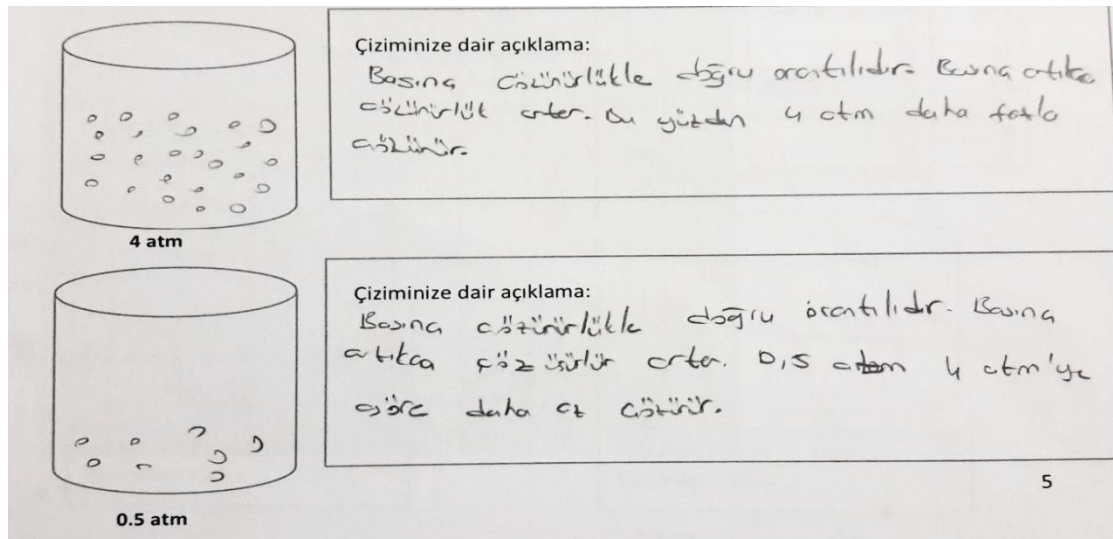 Çiziminize dair açıklama:
Basınç çözünürlükle doğru orantılıdır. Basınç artıkça
çözünürlük artar. Bu yüzden 4 atm daha fazla
çözünür.
4 atm
Çiziminize dair açıklama:
Basınç çözünürlükle doğru orantılıdır. Basınç
artıkca çözüürlür artar. 0,5 atm 4 atm'ye
göre daha az çözünür.
5
0.5 atm